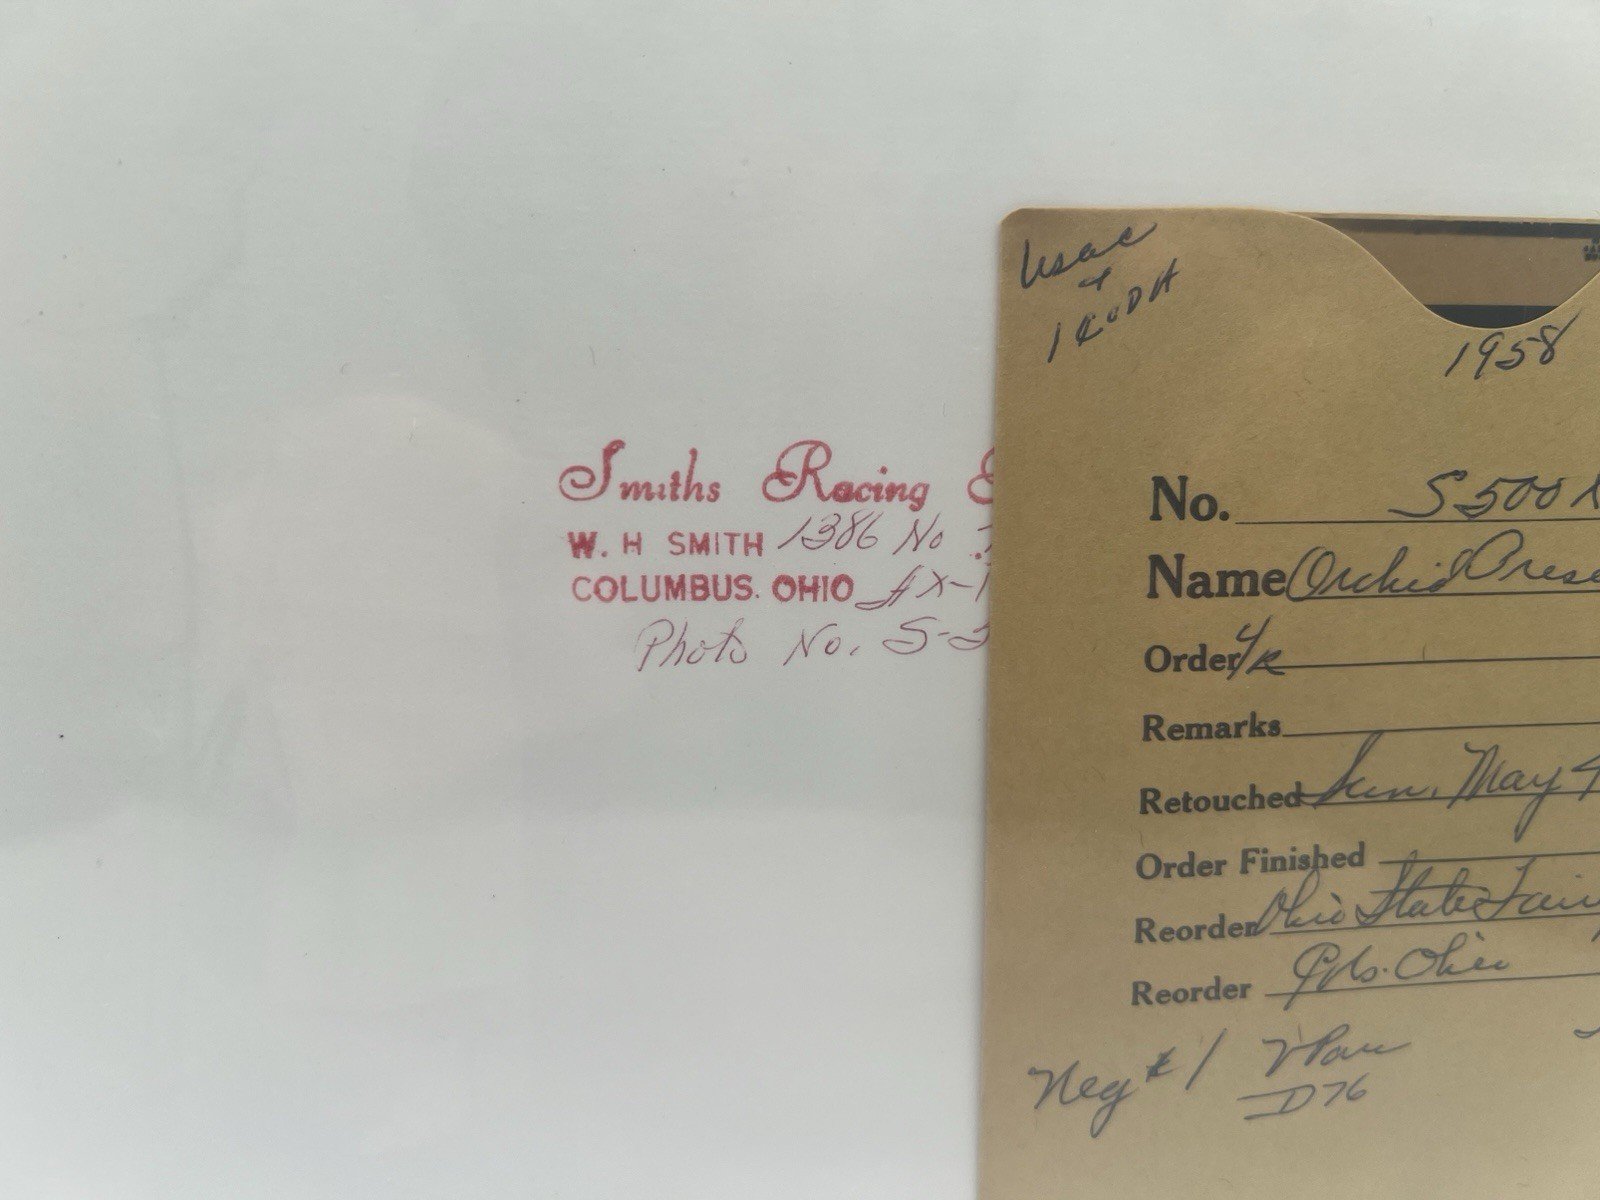 Smiths Racing
W. H SMITH 1386 No
COLUMBUS. OHIO AX-1
Photo No. S-3
usac
&
1958
No. S500
Name Orchid Prese
Order
Remarks
Retouched Sun. May 4
Order Finished
Reorder Ohio State Fair
Reorder Ohio
Neg # 1 V Pan
D76